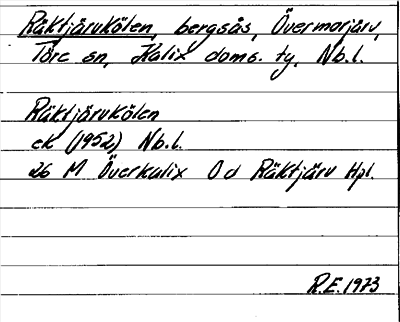 Räktjärvkölen, bergsås, Övermorjärv,
Töre sn, Kalix doms. ty, Nb.l.
Räktjärvkölen
ek (1952) Nb.l.
26 M Överkalix Od Räktjärv Hpl.
R.E. 1973